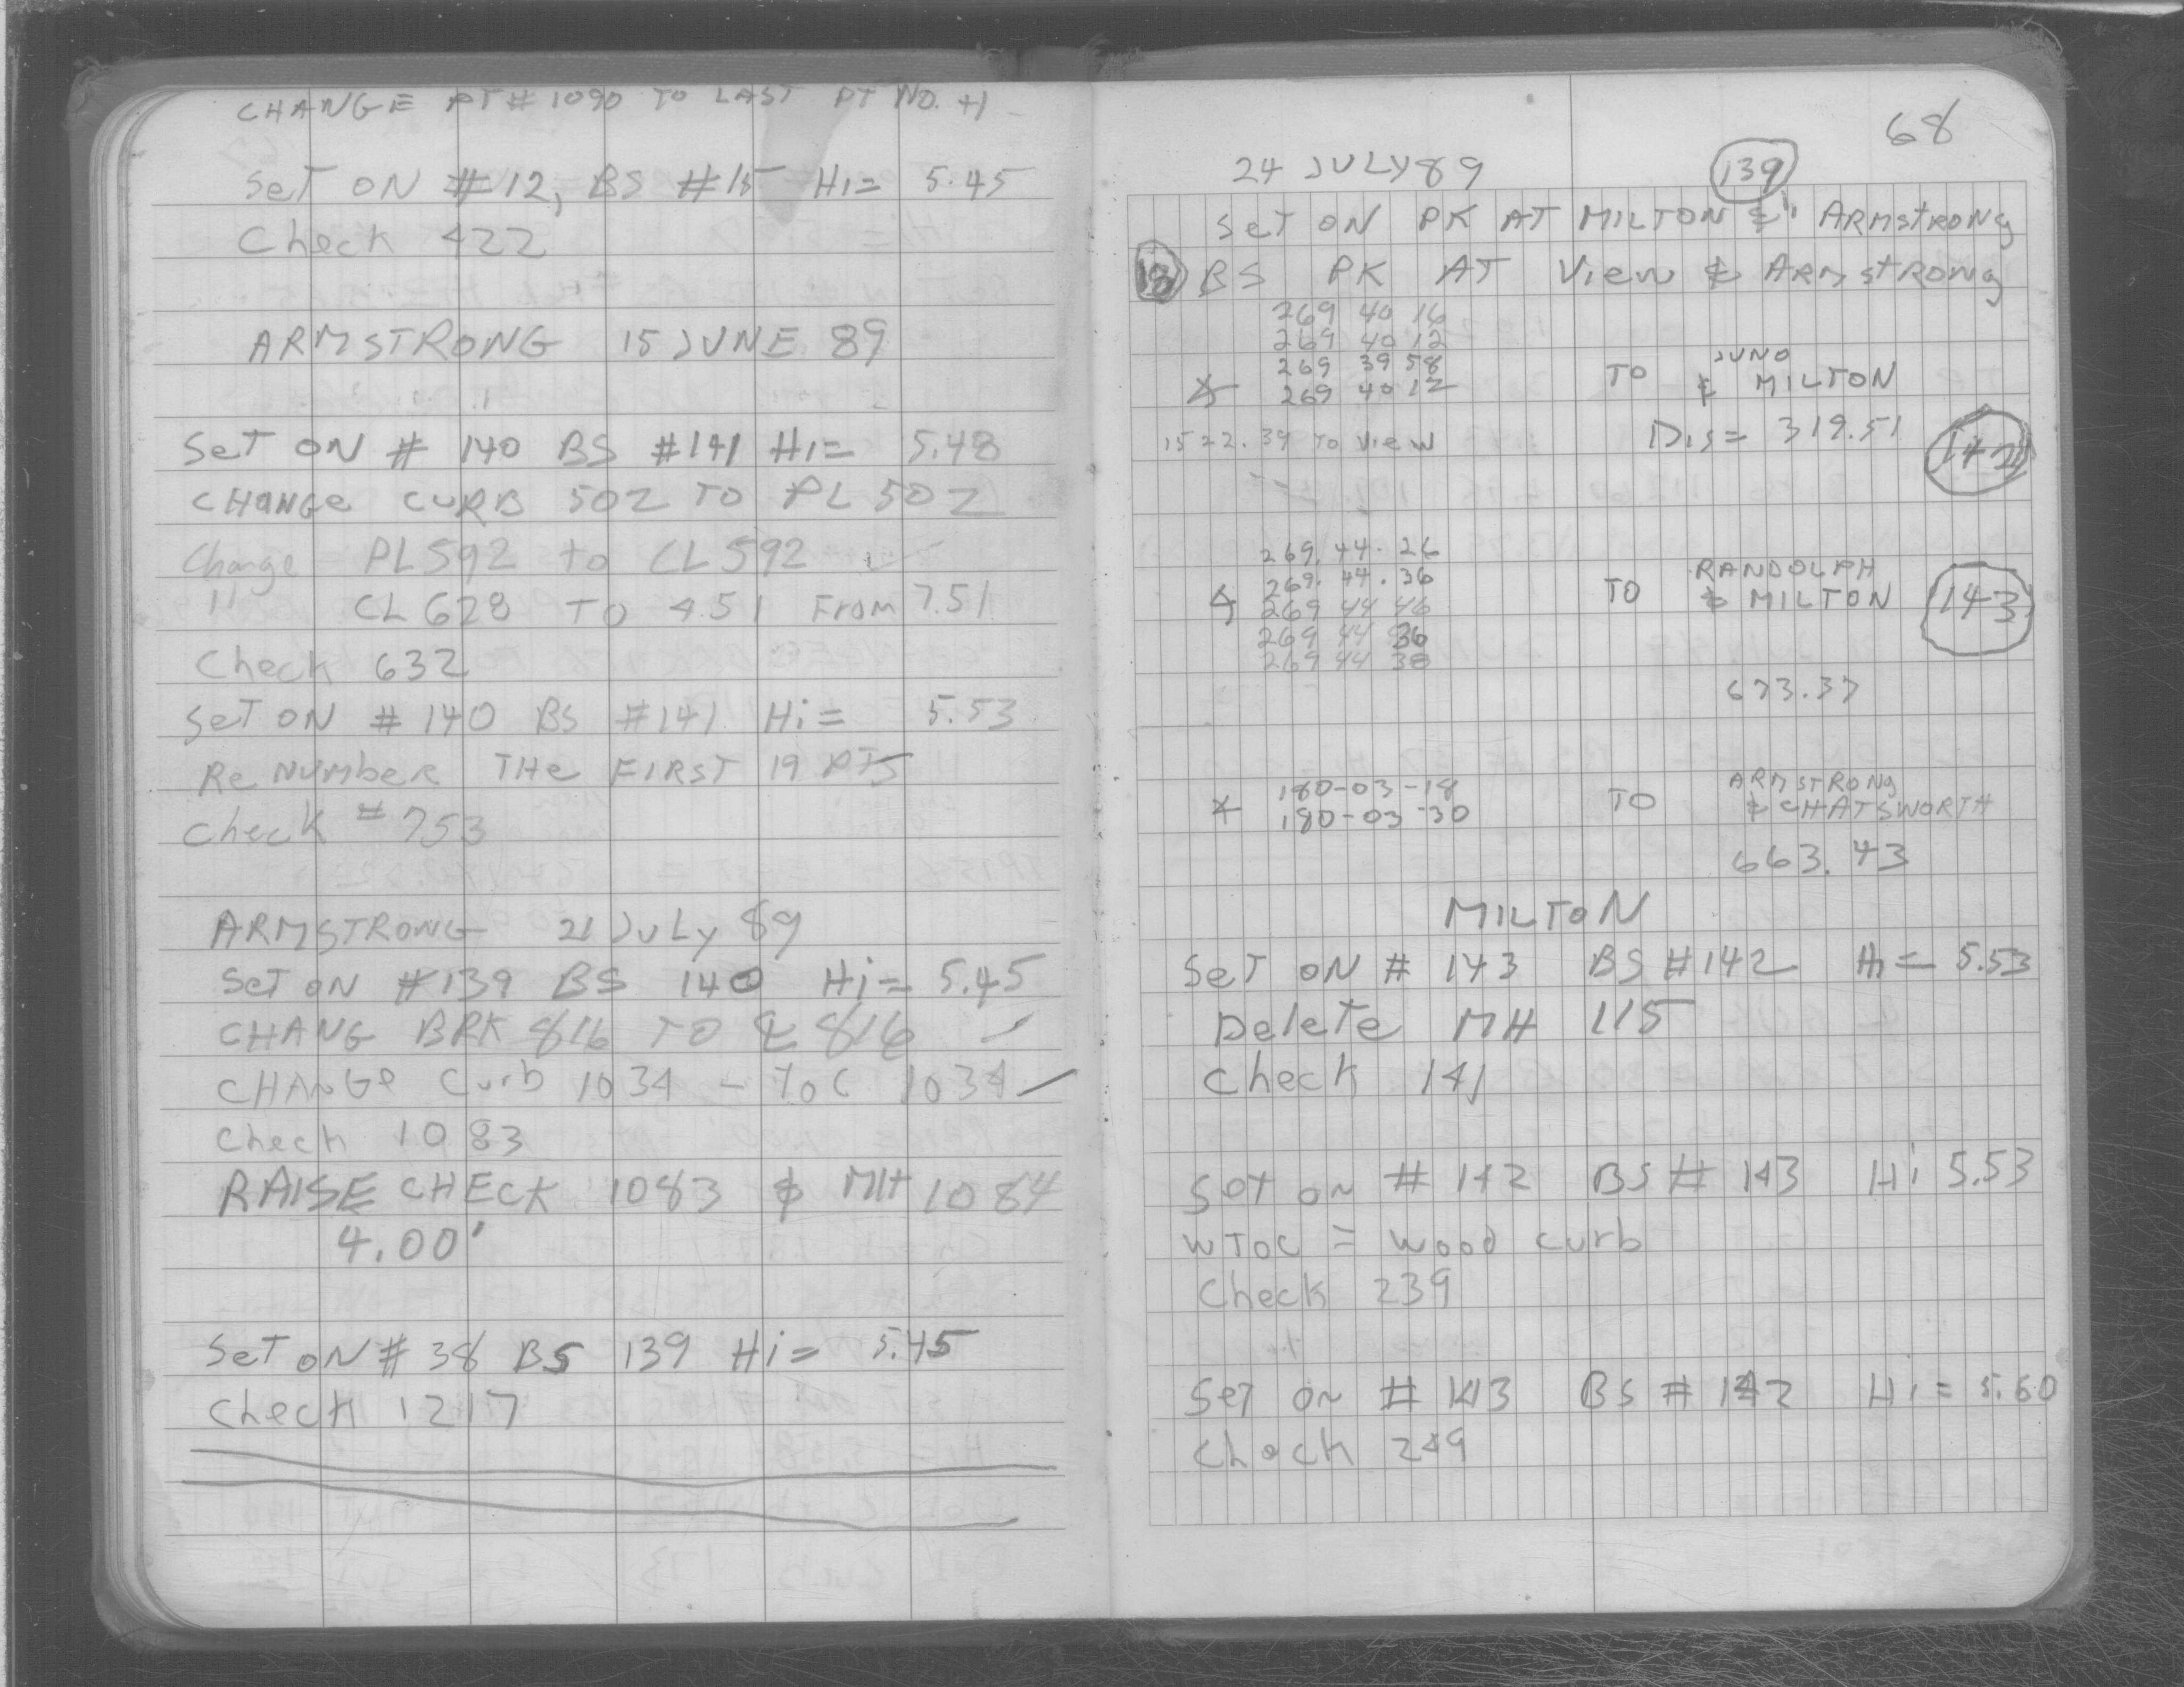 CHANGE PT# 1090 TO LAST PT NO. +1
SET ON #12, BS #15 HI= 5.45
Check 422
ARMSTRONG 15 JUNE 89
SET ON # 140 BS #141 HI= 5.48
CHANGE CURB 502 TO PL 502
Change PL592 to CL592 ✓
" CL 628 TO 4.51 From 7.51
Check 632
SET ON # 140 BS #141 Hi= 5.53
Re NUMBER THE FIRST 19 PTS
Check #753
ARMSTRONG 21 JULY 89
SET ON #139 BS 140 Hi= 5.45
CHANG BRK 816 TO ℄ 816 ✓
CHANGE Curb 1034 - TOC 1034 ✓
Check 1083
RAISE CHECK 1083 & MH 1084
4.00'
SET ON # 38 BS 139 Hi= 5.45
Check 1217
68
24 JULY 89 139
SET ON PK AT MILTON & ARMSTRONG
BS PK AT View & ARMSTRONG
269 40 16
269 40 12
269 39 58 JUNO
∡ 269 40 12 TO & MILTON
1522.39 TO View Dis= 319.51 142
269.44.26
269.44.36 RANDOLPH
∡ 269 44 46 TO & MILTON 143
269 44 36
269 44 38
673.37
180-03-18 ARMSTRONG
∡ 180-03-30 TO & CHATSWORTH
663.43
MILTON
SET ON # 143 BS #142 HI= 5.53
Delete MH 115
Check 141
Set on # 142 BS # 143 Hi 5.53
WTOC = Wood curb
Check 239
Set on # 143 BS # 142 Hi = 5.60
Check 249